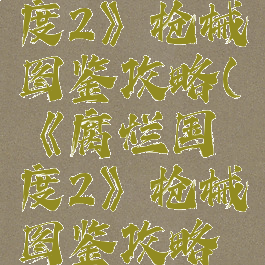 度2》枪械
图鉴攻略(
《腐烂国
度2》枪械
图鉴攻略